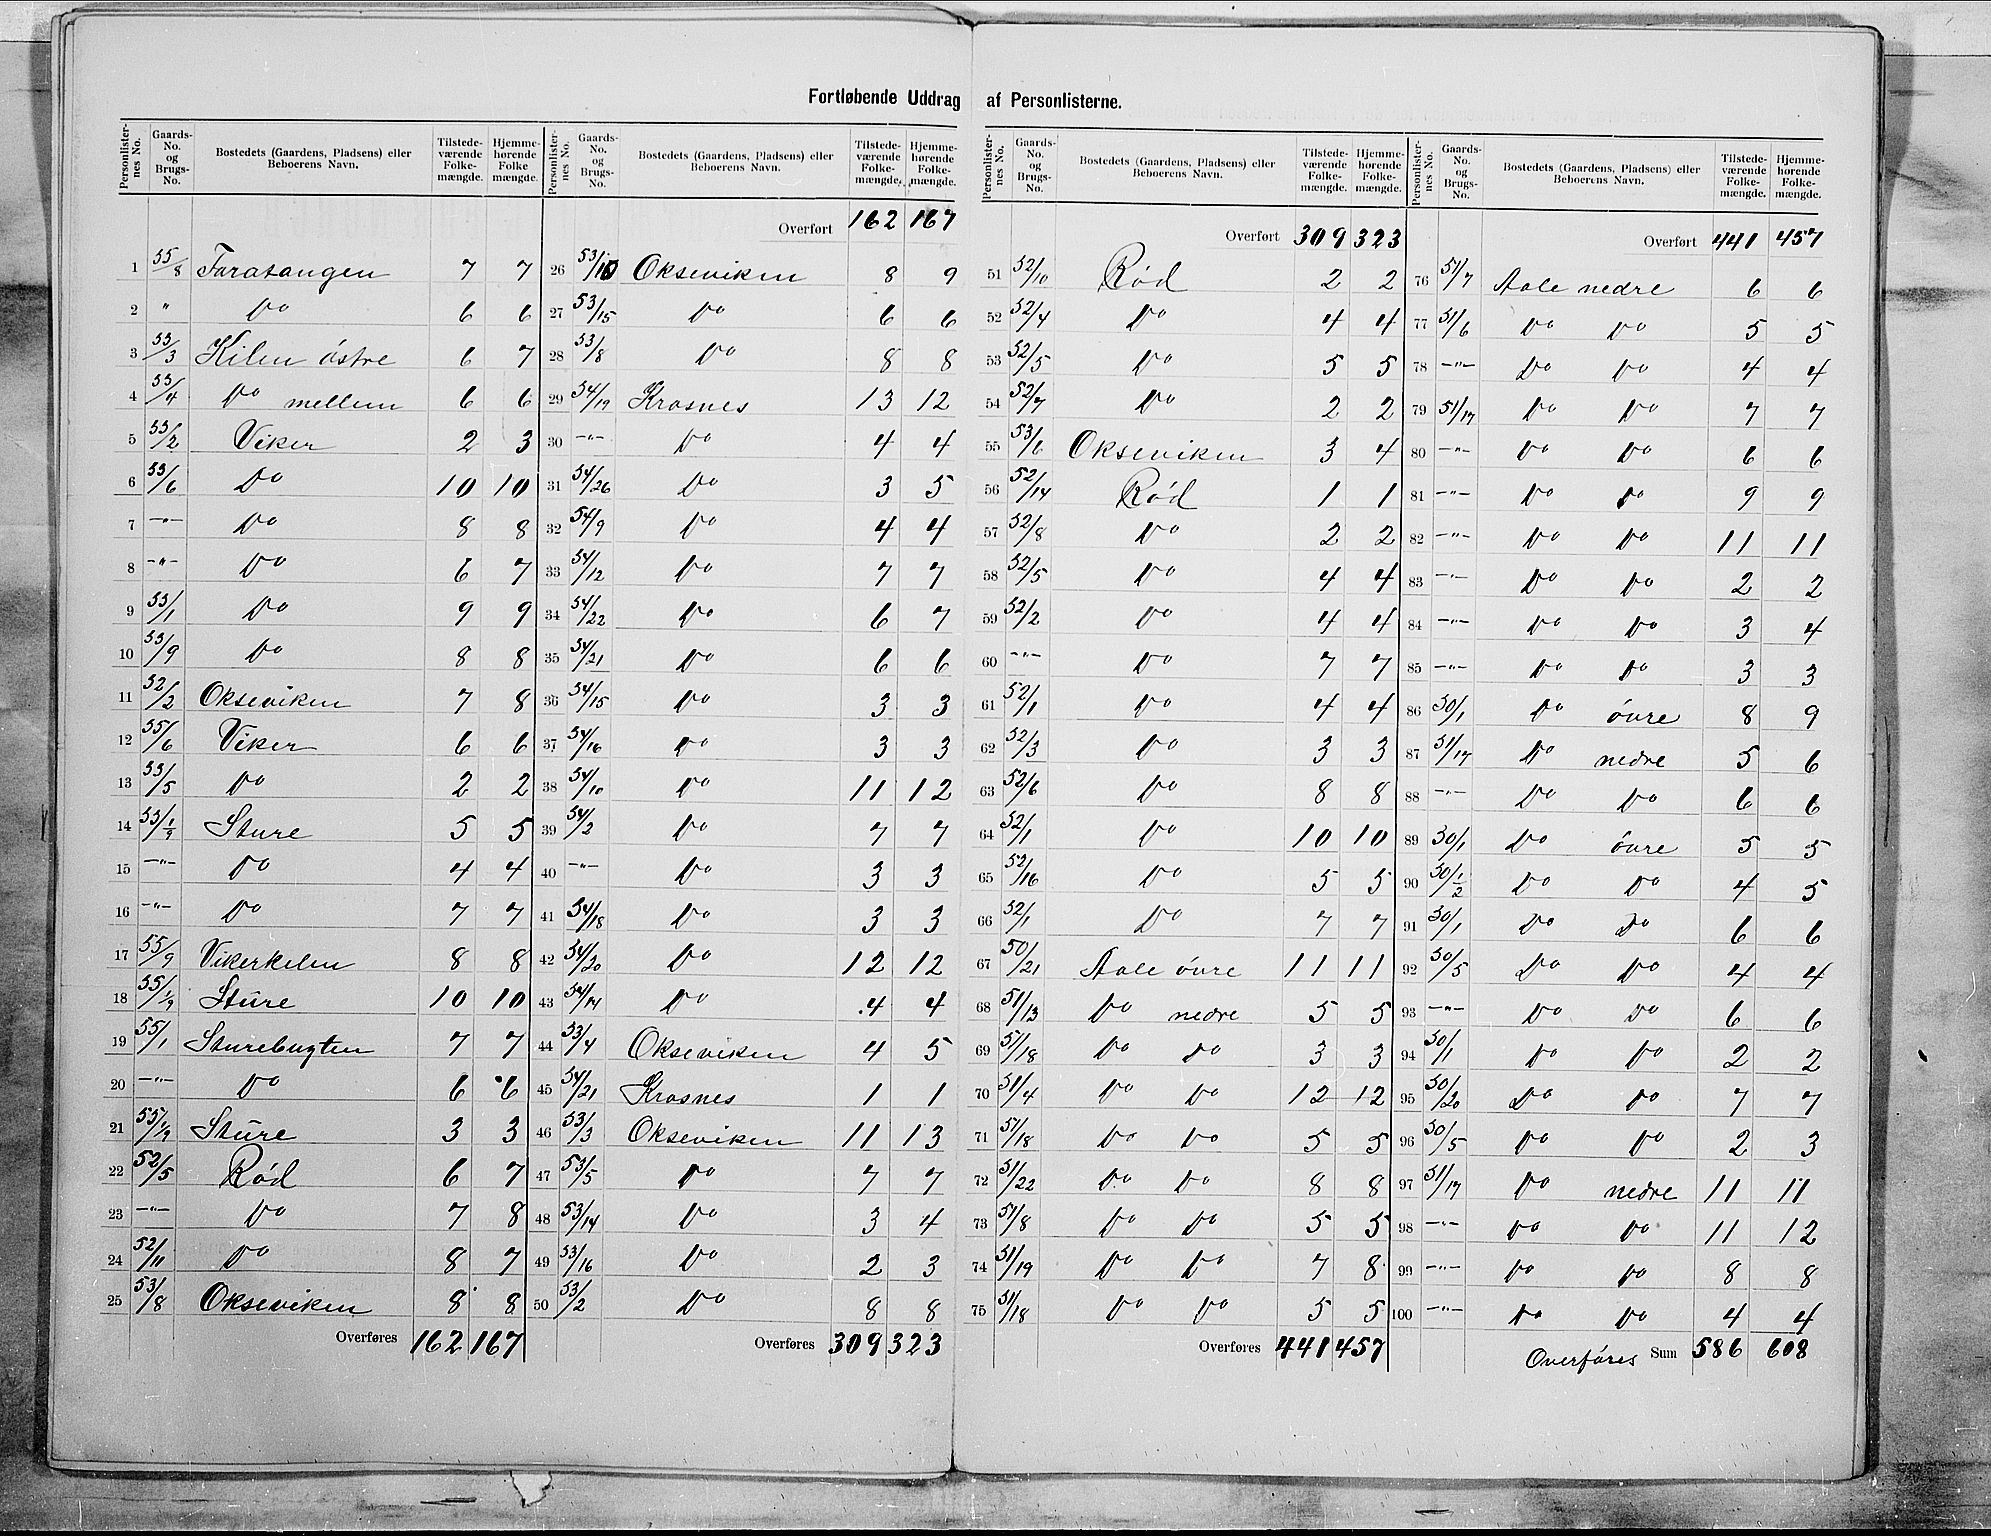 Fortløbende Uddrag af Personlisterne.
Personlisternes No. Gaards-No. og Brugs-No. Bostedets (Gaardens, Pladsens) eller Beboerens Navn. Tilstedeværende Folkemængde. Hjemmehørende Folkemængde.
1 55/8 7 7
2 " Do 6 6
3 55/3 Kilen östre 6 7
4 55/4 Do mellem 6 6
5 55/2 Viker 2 3
6 55/6 Do 10 10
7 -"- Do 8 8
8 -"- Do 6 7
9 55/1 Do 9 9
10 55/9 Do 8 8
11 52/2 Okseviken 7 8
12 55/6 Viker 6 6
13 55/5 Do 2 2
14 55/1/9 Sture 5 5
15 -"- Do 4 4
16 -"- Do 7 7
17 55/9 Vikerkilen 8 8
18 55/1/9 Sture 10 10
19 55/1 Sturebugten 7 7
20 -"- Do 6 6
21 55/1/9 Sture 3 3
22 52/5 Röd 6 7
23 -"- Do 7 8
24 52/11 Do 8 7
25 53/8 Okseviken 8 8
Overføres 162 167
Personlisternes No. Gaards-No. og Brugs-No. Bostedets (Gaardens, Pladsens) eller Beboerens Navn. Tilstedeværende Folkemængde. Hjemmehørende Folkemængde.
Overført 162 167
26 53/10 Okseviken 8 9
27 53/15 Do 6 6
28 53/8 Do 8 8
29 54/19 Krosnes 13 12
30 -"- Do 4 4
31 54/26 Do 3 5
32 54/9 Do 4 4
33 54/12 Do 7 7
34 54/22 Do 6 7
35 54/21 Do 6 6
36 54/15 Do 3 3
37 54/16 Do 3 3
38 54/10 Do 11 12
39 54/2 Do 7 7
40 -"- Do 3 3
41 54/18 Do 3 3
42 54/20 Do 12 12
43 54/14 Do 4 4
44 53/4 Okseviken 4 5
45 54/21 Krosnes 1 1
46 53/3 Okseviken 11 13
47 53/5 Do 7 7
48 53/14 Do 3 4
49 53/16 Do 2 3
50 53/2 Do 8 8
Overføres 309 323
Personlisternes No. Gaards-No. og Brugs-No. Bostedets (Gaardens, Pladsens) eller Beboerens Navn. Tilstedeværende Folkemængde. Hjemmehørende Folkemængde.
Overført 309 323
51 52/10 Röd 2 2
52 52/4 Do 4 4
53 52/5 Do 5 5
54 52/7 Do 2 2
55 53/6 Okseviken 3 4
56 52/14 Röd 1 1
57 52/8 Do 2 2
58 52/5 Do 4 4
59 52/2 Do 4 4
60 -"- Do 7 7
61 52/1 Do 4 4
62 52/3 Do 3 3
63 52/6 Do 8 8
64 52/1 Do 10 10
65 52/16 Do 5 5
66 52/1 Do 7 7
67 50/21 Aale övre 11 11
68 51/13 Do nedre 5 5
69 51/18 Do Do 3 3
70 51/4 Do Do 12 12
71 51/18 Do Do 5 5
72 51/22 Do Do 8 8
73 51/8 Do Do 5 5
74 51/19 Do Do 7 8
75 51/18 Do Do 5 5
Overføres 441 457
Personlisternes No. Gaards-No. og Brugs-No. Bostedets (Gaardens, Pladsens) eller Beboerens Navn. Tilstedeværende Folkemængde. Hjemmehørende Folkemængde.
Overført 441 457
76 51/7 Aale nedre 6 6
77 51/6 Do Do 5 5
78 -"- Do Do 4 4
79 51/17 Do Do 7 7
80 -"- Do Do 6 6
81 -"- Do Do 9 9
82 -"- Do Do 11 11
83 -"- Do Do 2 2
84 -"- Do Do 3 4
85 -"- Do Do 3 3
86 50/1 Do övre 8 9
87 51/17 Do nedre 5 6
88 -"- Do Do 6 6
89 50/1 Do övre 5 5
90 50/1/2 Do Do 4 5
91 50/1 Do Do 6 6
92 50/5 Do Do 4 4
93 -"- Do Do 6 6
94 50/1 Do Do 2 2
95 50/20 Do Do 7 7
96 50/5 Do Do 2 3
97 51/17 Do nedre 11 11
98 -"- Do Do 11 12
99 -"- Do Do 8 8
100 -"- Do Do 4 4
Overföres Sum 586 608